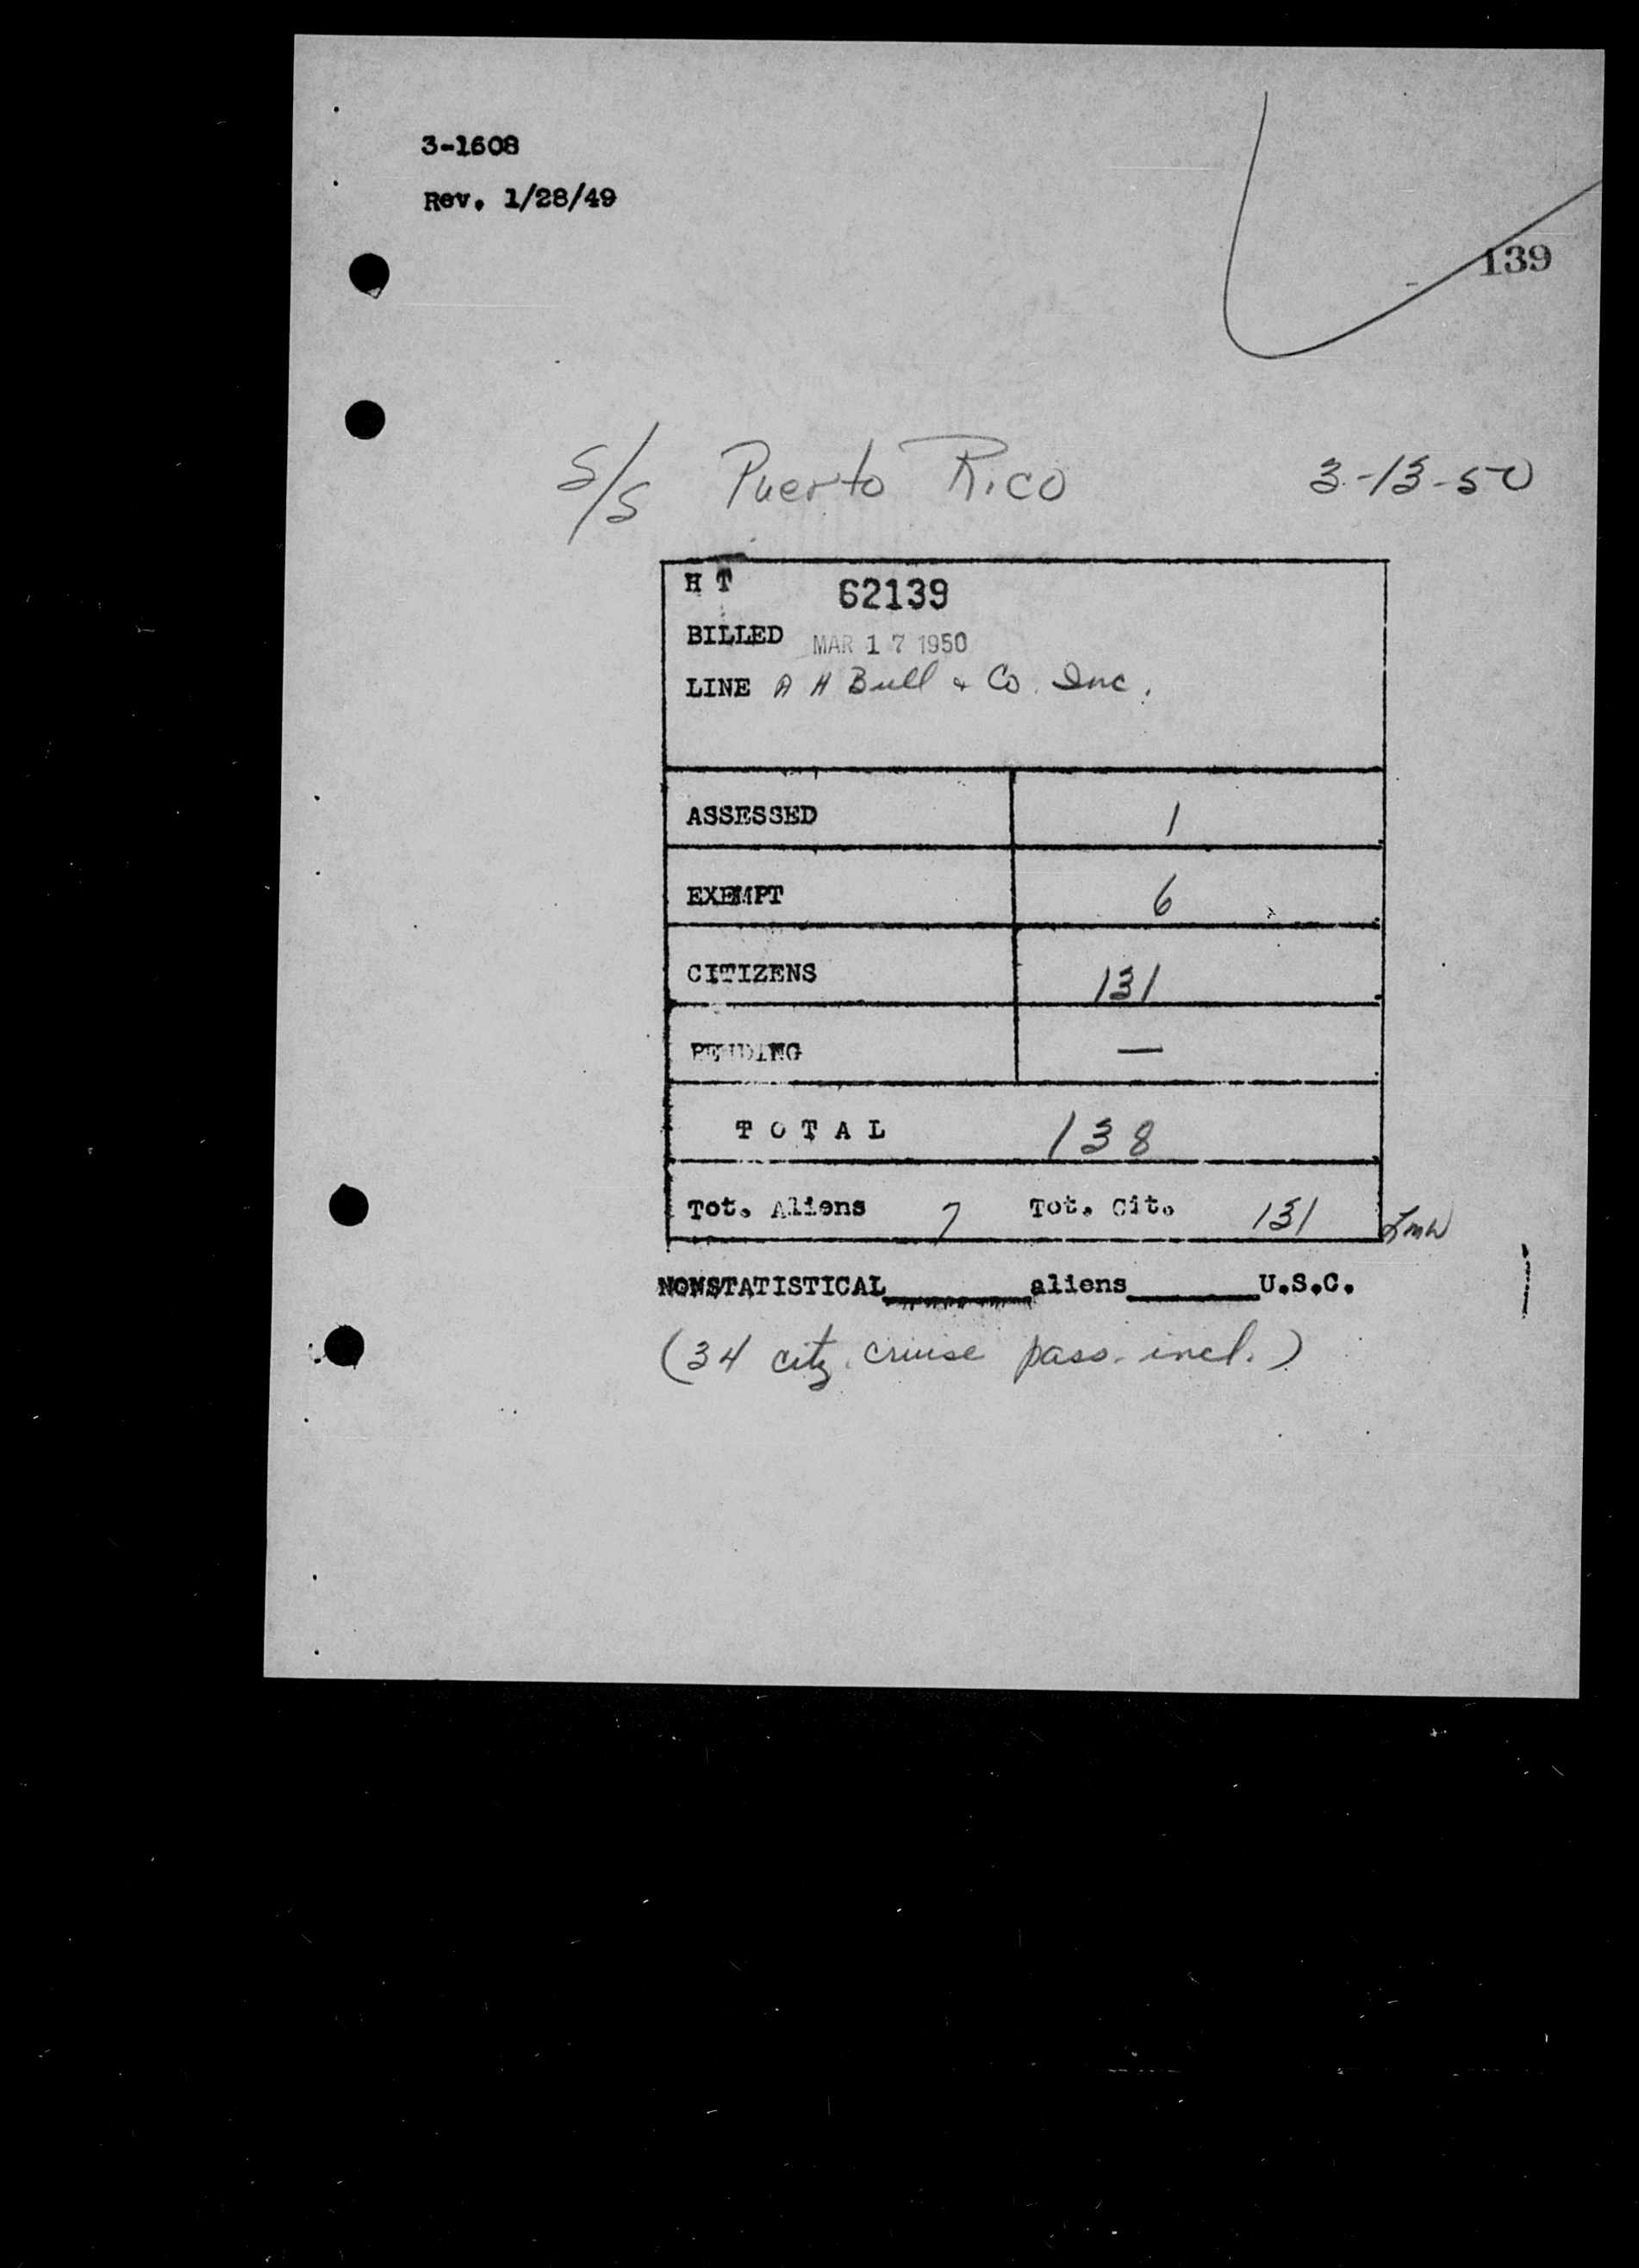 3-1608
Rev. 1/28/49
139
S/S Puerto Rico 3-13-50
H T 62139
BILLED MAR 17 1950
LINE A H Bull & Co. Inc.
ASSESSED 1
EXEMPT 6
CITIZENS 131
PENDING —
TOTAL 138
Tot. Aliens 7 Tot. Cit. 131
NONSTATISTICAL______aliens______U.S.C.
(34 citz. cruise pass. incl.)